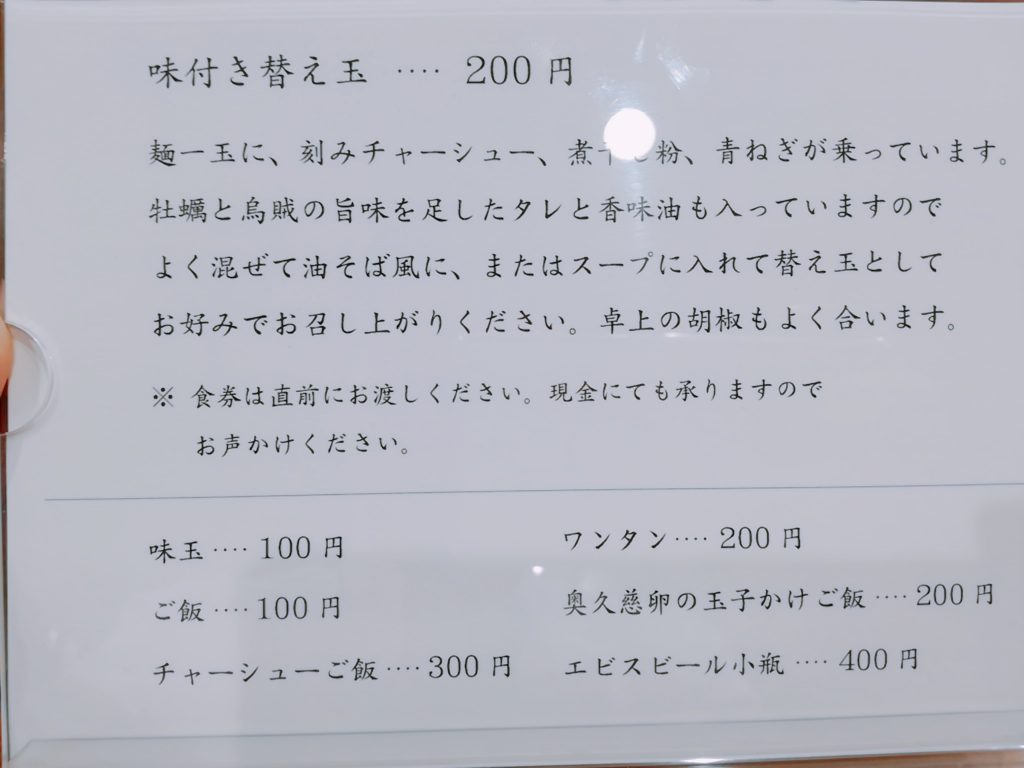 味付き替え玉 ‥‥ 200 円
麺一玉に、刻みチャーシュー、煮干し粉、青ねぎが乗っています。
牡蠣と烏賊の旨味を足したタレと香味油も入っていますので
よく混ぜて油そば風に、またはスープに入れて替え玉として
お好みでお召し上がりください。卓上の胡椒もよく合います。
※ 食券は直前にお渡しください。現金にても承りますので
お声かけください。
味玉 ‥‥ 100 円
ワンタン ‥‥ 200 円
ご飯 ‥‥ 100 円
奥久慈卵の玉子かけご飯 ‥‥ 200 円
チャーシューご飯 ‥‥ 300 円
エビスビール小瓶 ‥‥ 400 円